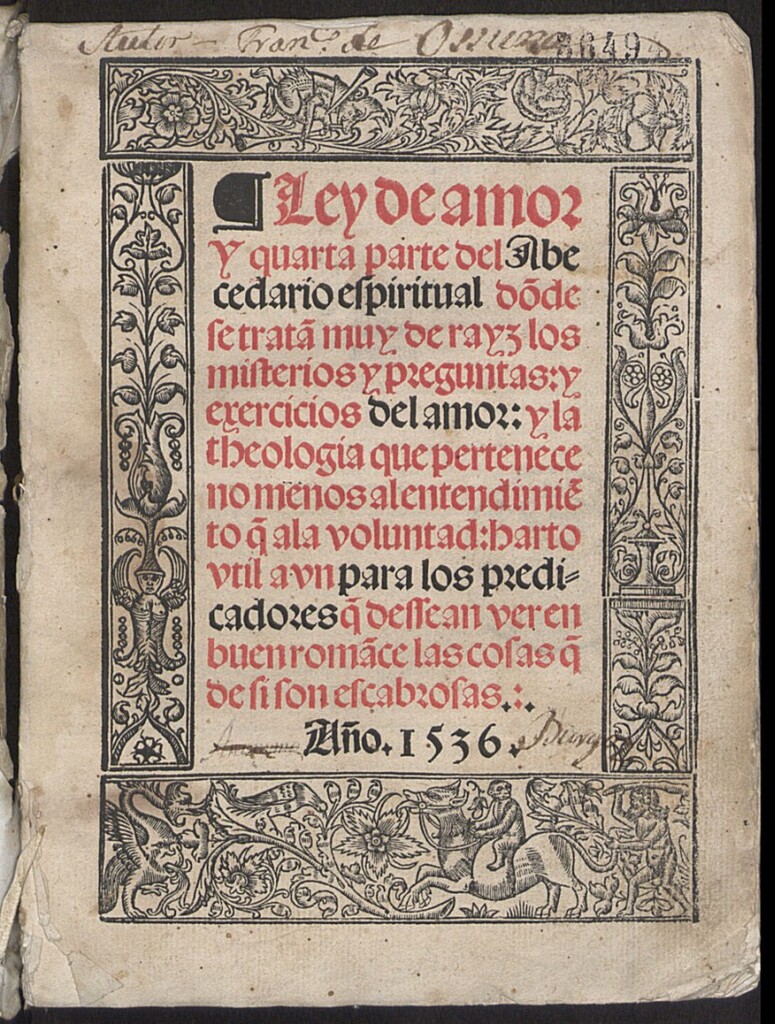 Autor - Fran.º de Ossuna
86494
¶ Ley de amor
Y quarta parte del Abe
cedario eſpiritual dõde
ſe tratã muy de rayz los
miſterios y preguntas: y
exercicios del amor: y la
theologia que pertenece
no menos al entendimiẽ
to q̃ a la voluntad: harto
vtil a vn para los predi-
cadores q̃ deſſean ver en
buen romãce las coſas q̃
de ſi ſon eſcabroſas.:.
Año. 1536.